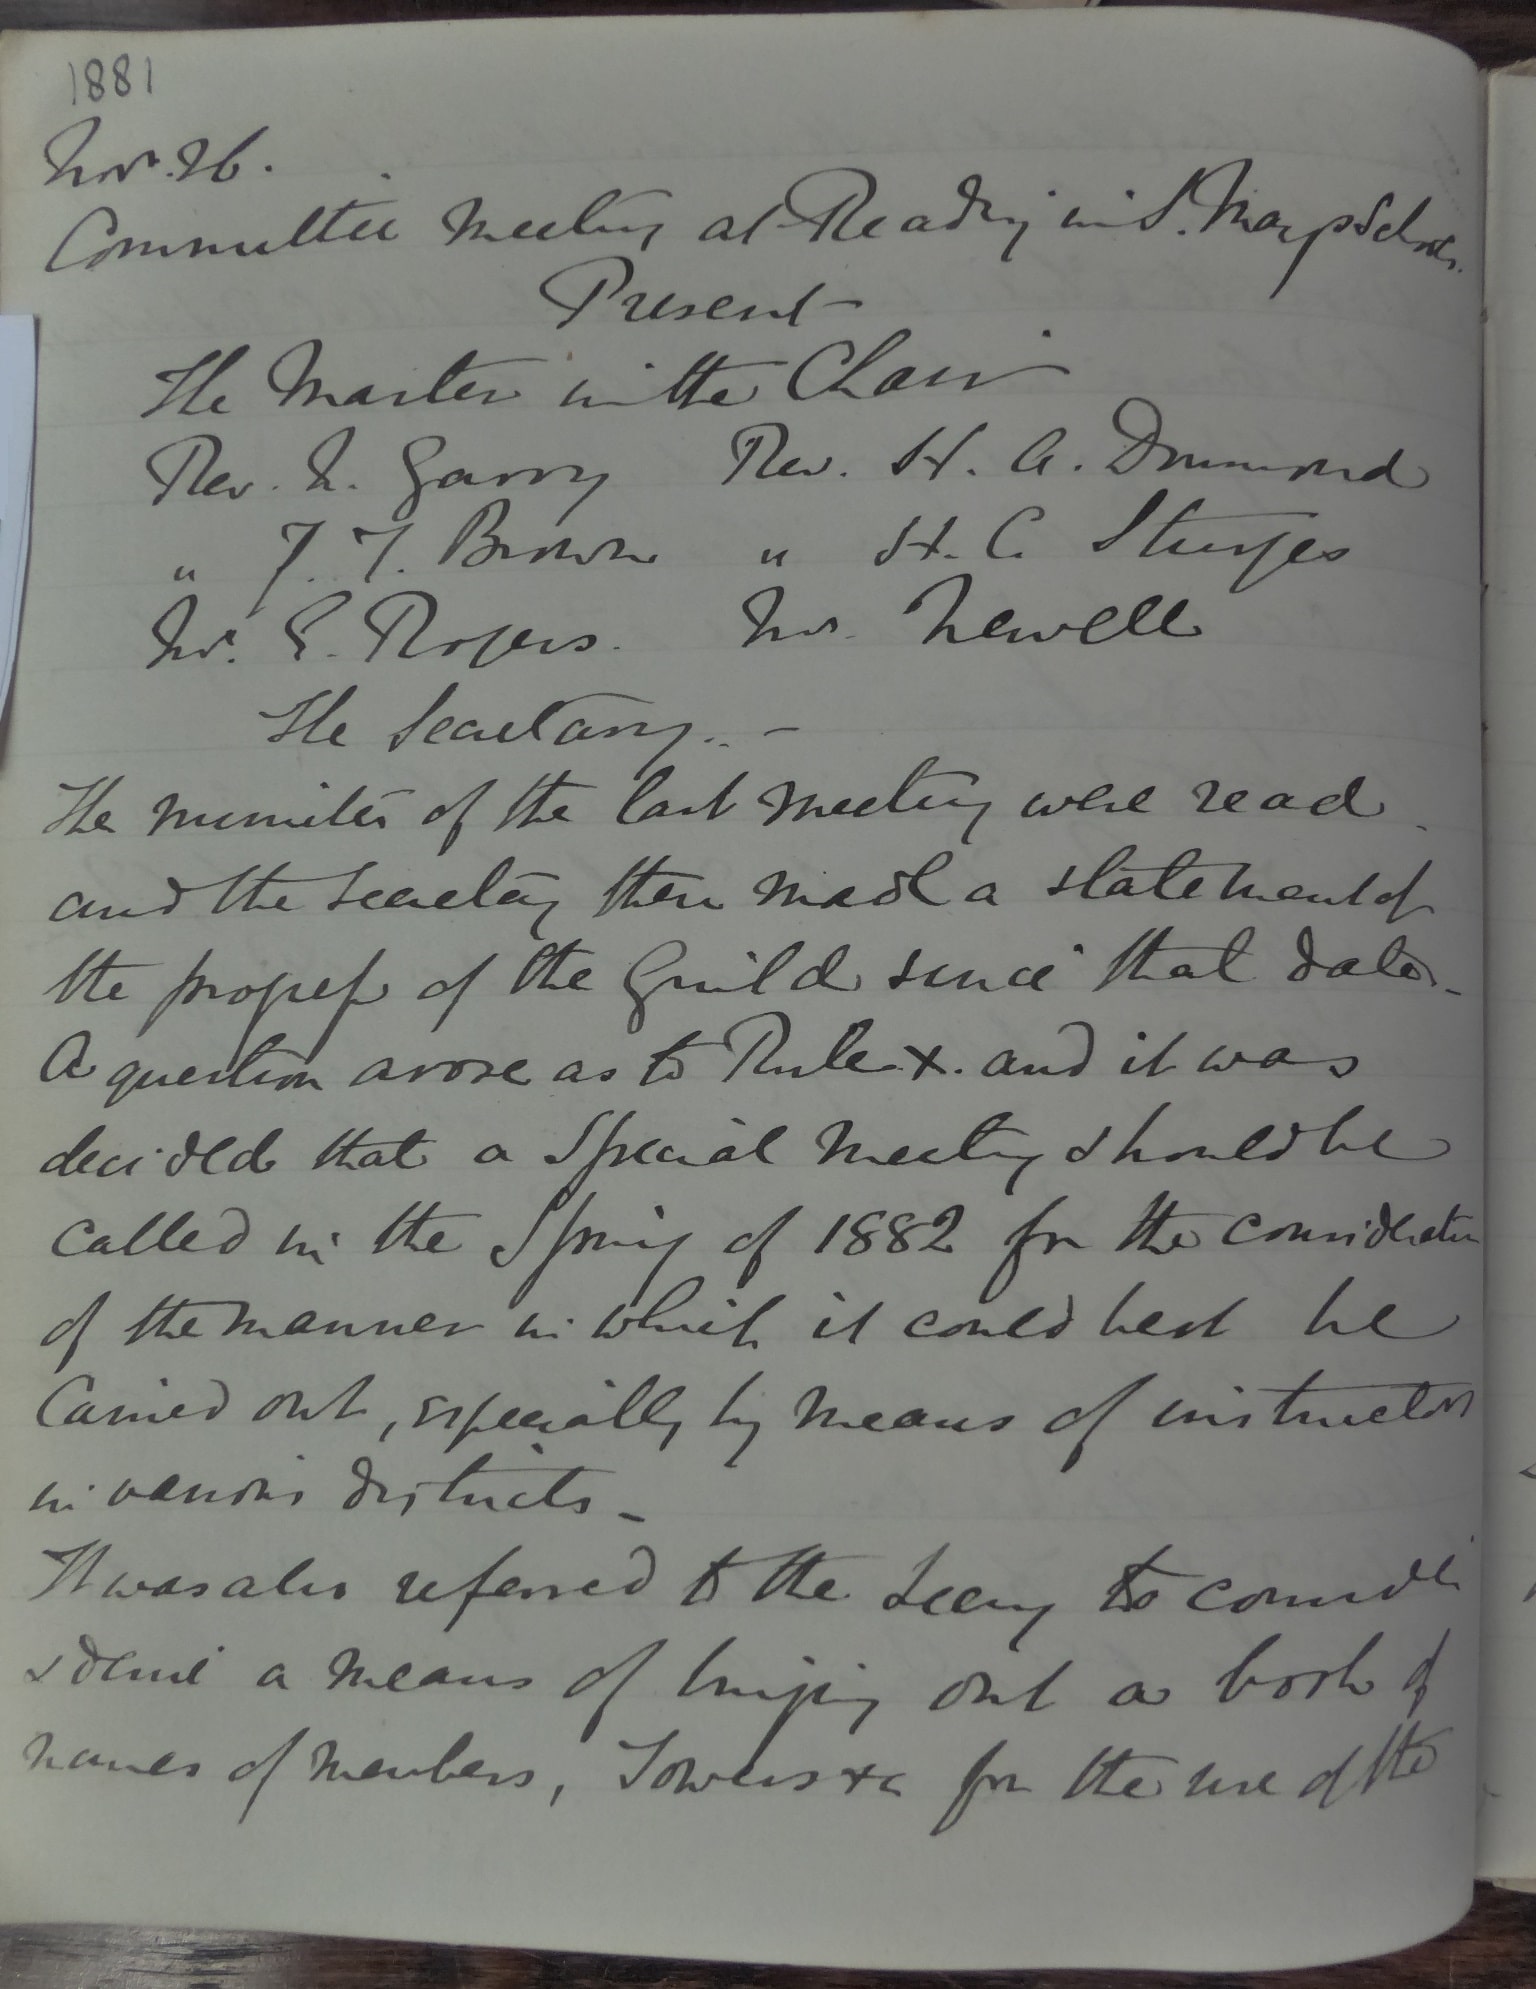 1881
Nov. 26.
Committee Meeting at Reading in S. Mary's Schools.
Present
The Master in the Chair
Rev. N. Garry Rev. H. A. Drummond
" J. F. Brown " H. C. Sturges
Mr. E. Rogers. Mr. Newell
The Secretary. -
The minutes of the last Meeting were read
and the Secretary then made a statement of
the progress of the Guild since that date. -
A question arose as to Rule X. and it was
decided that a Special Meeting should be
called in the Spring of 1882 for the consideration
of the manner in which it could best be
Carried out, especially by means of instructors
in various districts -
It was also referred to the Secry to consider
& devise a means of bringing out a book of
names of members, Towers &c for the use of the